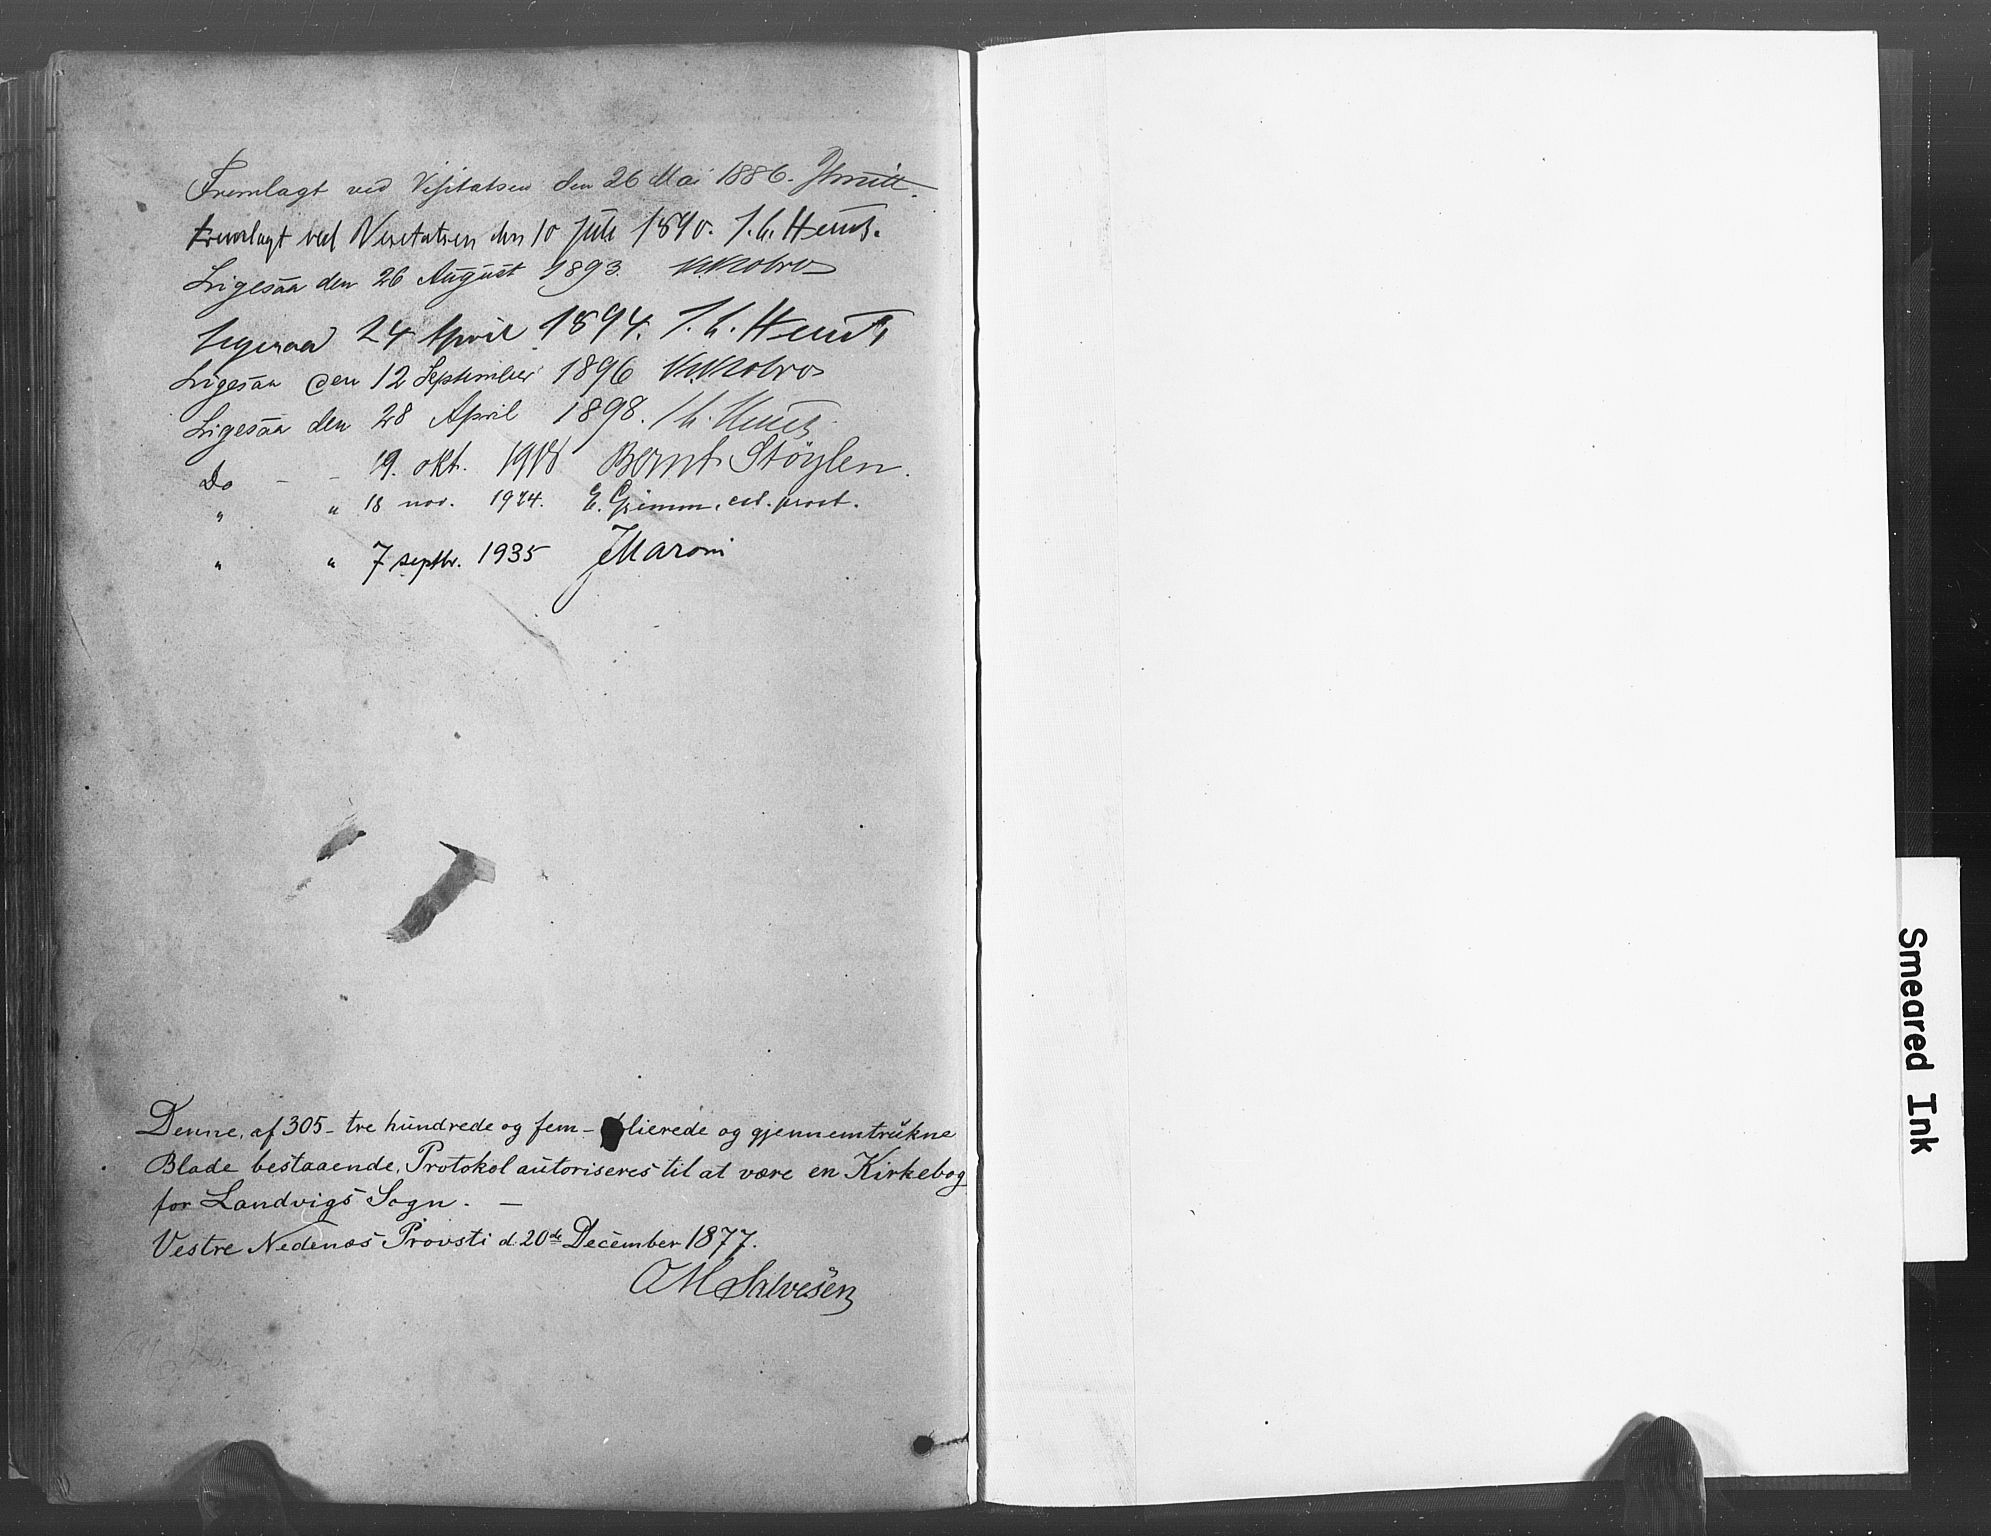 Fremlagt ved Visitatsen den 26 Mai 1886. JSmitt.
Fremlagt ved Visitatsen den 10 Juli 1890. J. C. Heuch.
Ligesaa den 26 August 1893.
Ligesaa 24 April 1894. J. C. Heuch
Ligesaa den 12 September 1896
Ligesaa den 28 April 1898. J. C. Heuch
Do - - 19. okt. 1918 Bernt Støylen.
" " 18 nov. 1924. E. Grimm, cst. prost.
" " 7 septbr. 1935 JMaroni
Denne, af 305 - tre hundrede og fem - folierede og gjennemtrukne
Blade bestaaende, Protokol autoriseres til at være en Kirkebog
for Landvigs Sogn. -
Vestre Nedenæs Provsti d. 20de December 1877.
OMSalvesen
Smeared Ink